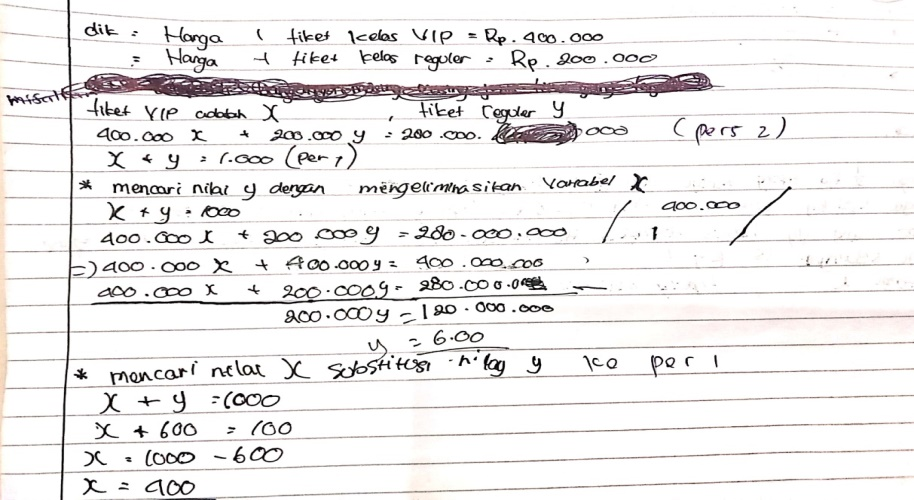 dik : Harga 1 tiket kelas VIP = Rp. 400.000
= Harga 1 tiket kelas reguler = Rp. 200.000
misalkan
tiket VIP adalah X , tiket reguler y
400.000 x + 200.000 y = 280.000. 000 (pers 2)
X + y = 1.000 (per 1)
* mencari nilai y dengan mengeliminasikan Variabel X
X + y = 1000 / 400.000 /
400.000 X + 200.000 y = 280.000.000 / 1 /
=) 400.000 X + 400.000 y = 400.000.000
400.000 X + 200.000 y = 280.000.000 -
200.000 y = 120.000.000
y = 6.00
* mencari nilai X substitusi nilay y ke per 1
X + y = 1000
X + 600 = 100
X = 1000 - 600
X = 400